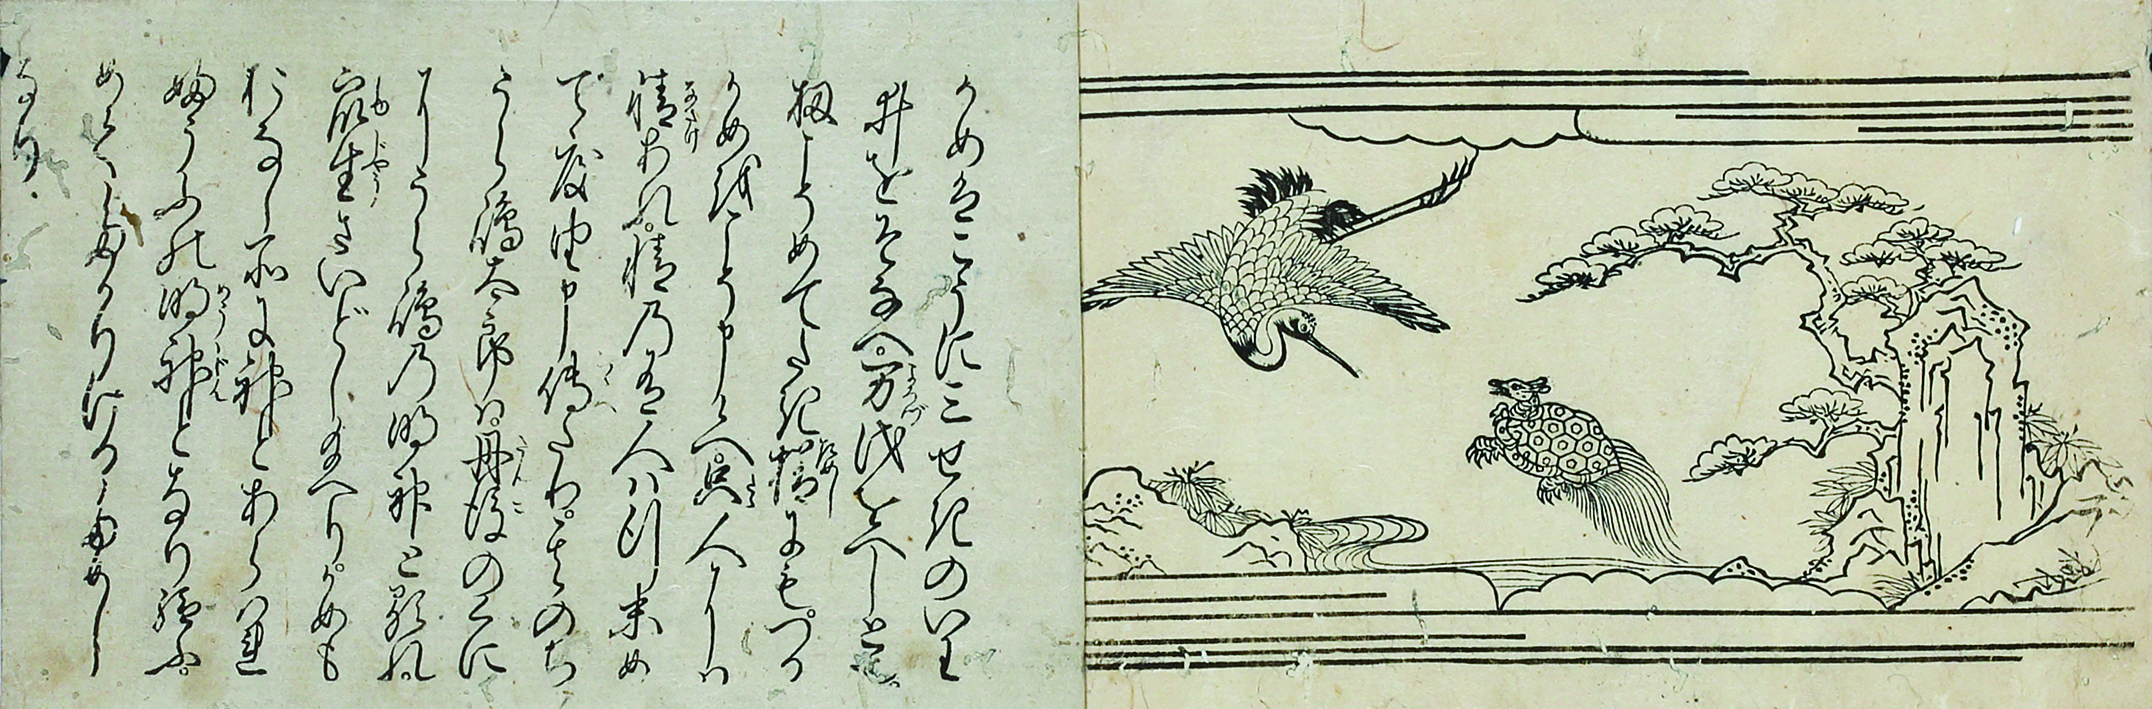 かめはこうに三せきのいわ
井をそなへ万代をへしとそ
扨こそめてたき様にもつる
かめをこそ申候へ只人には
情あれ情のある人は行末め
てたき由申伝たり其のち
うら嶋太郎は丹後のくに
にうら嶋の明神と顕れ
衆生さいどし給へりかめも
おなし所に神とあらはれ
婦うふの明神となり給ふ
めてたかりけるためし
なり